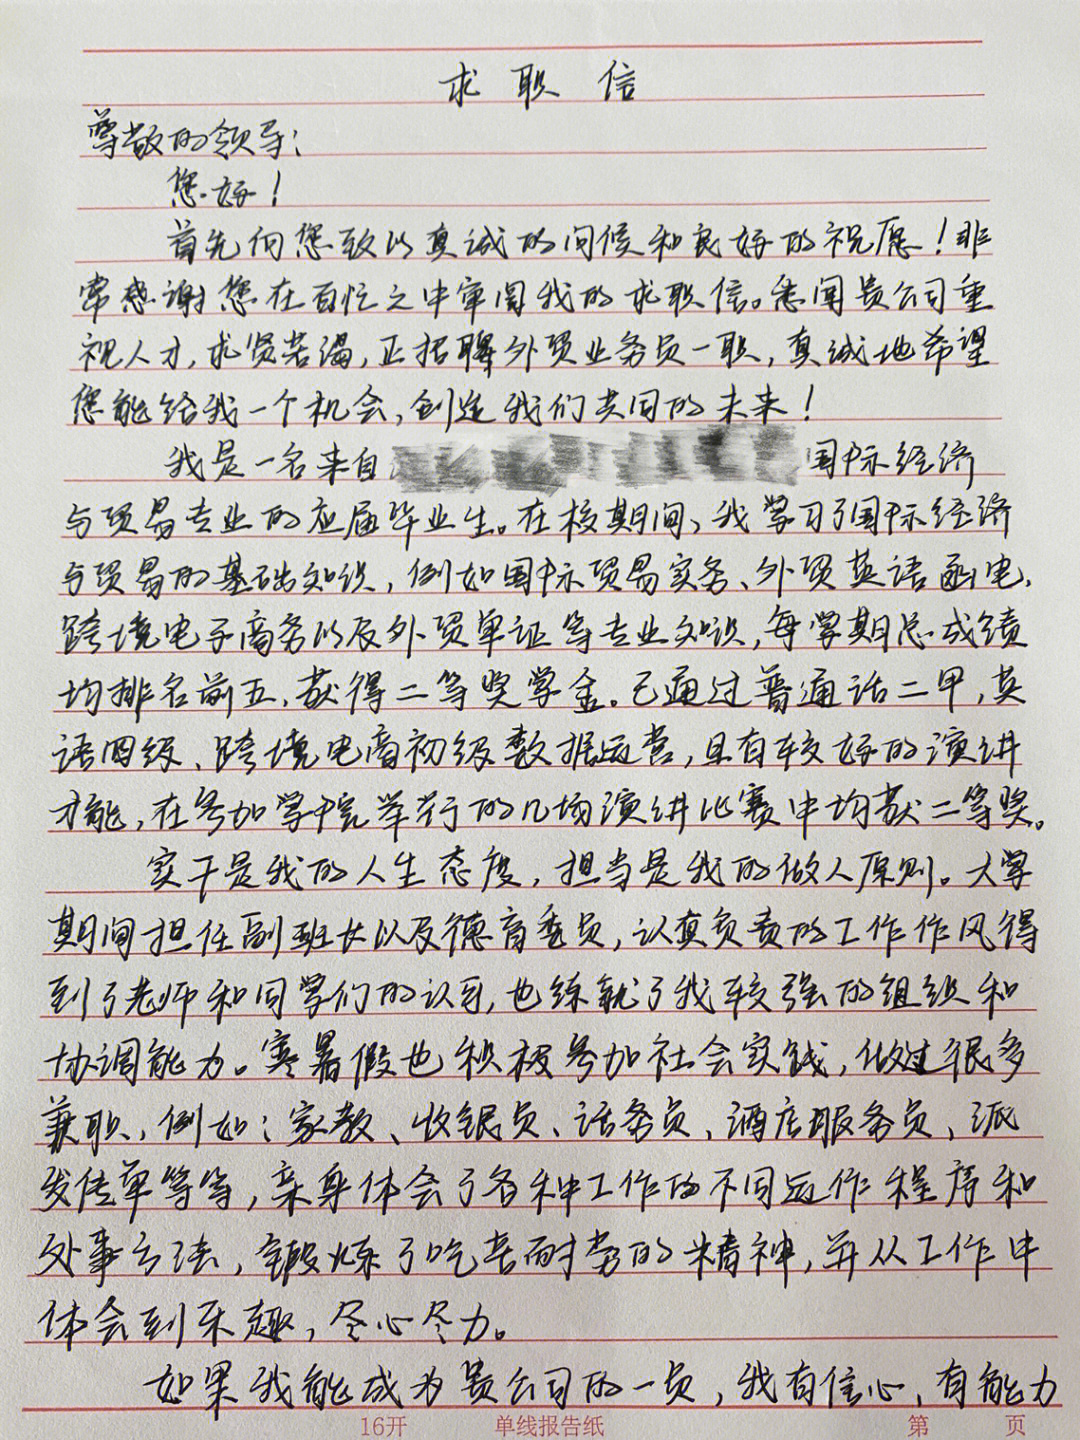 求职信
尊敬的领导：
您好！
首先向您致以真诚的问候和良好的祝愿！非
常感谢您在百忙之中审阅我的求职信。悉闻贵公司重
视人才，求贤若渴，正招聘外贸业务员一职，真诚地希望
您能给我一个机会，创造我们共同的未来！
我是一名来自国际经济
与贸易专业的应届毕业生。在校期间，我学习了国际经济
与贸易的基础知识，例如国际贸易实务、外贸英语函电、
跨境电子商务以及外贸单证等专业知识，每学期总成绩
均排名前五，获得二等奖学金。已通过普通话二甲，英
语四级、跨境电商初级数据运营，且有较好的演讲
才能，在参加学院举行的几场演讲比赛中均获二等奖。
实干是我的人生态度，担当是我的做人原则。大学
期间担任副班长以及德育委员，认真负责的工作作风得
到了老师和同学们的认可，也练就了我较强的组织和
协调能力。寒暑假也积极参加社会实践，做过很多
兼职，例如：家教、收银员、话务员、酒店服务员、派
发传单等等，亲身体会了各种工作的不同运作程序和
处事方法，锻炼了吃苦耐劳的精神，并从工作中
体会到乐趣，尽心尽力。
如果我能成为贵公司的一员，我有信心、有能力
16开 单线报告纸 第 页